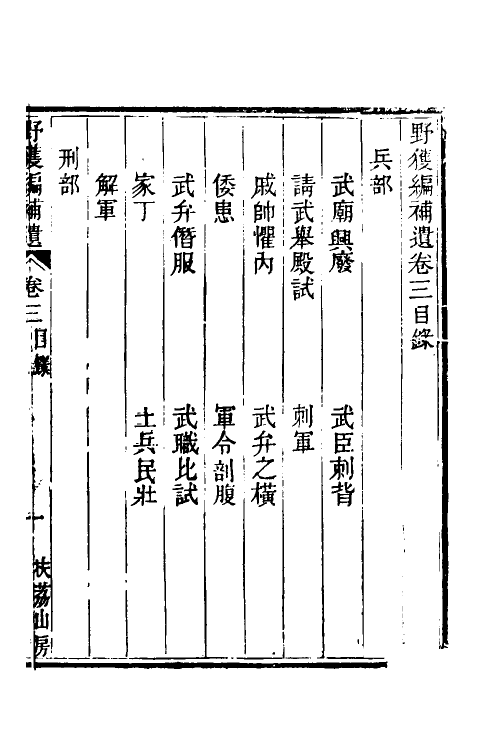 野獲編補遺卷三目錄
兵部
武廟興廢 武臣刺背
請武舉殿試 刺軍
戚帥懼內 武弁之橫
倭患 軍令剖腹
武弁僭服 武職比試
家丁 土兵民壯
解軍
刑部
野獲編補遺 卷三目錄 一 扶荔山房